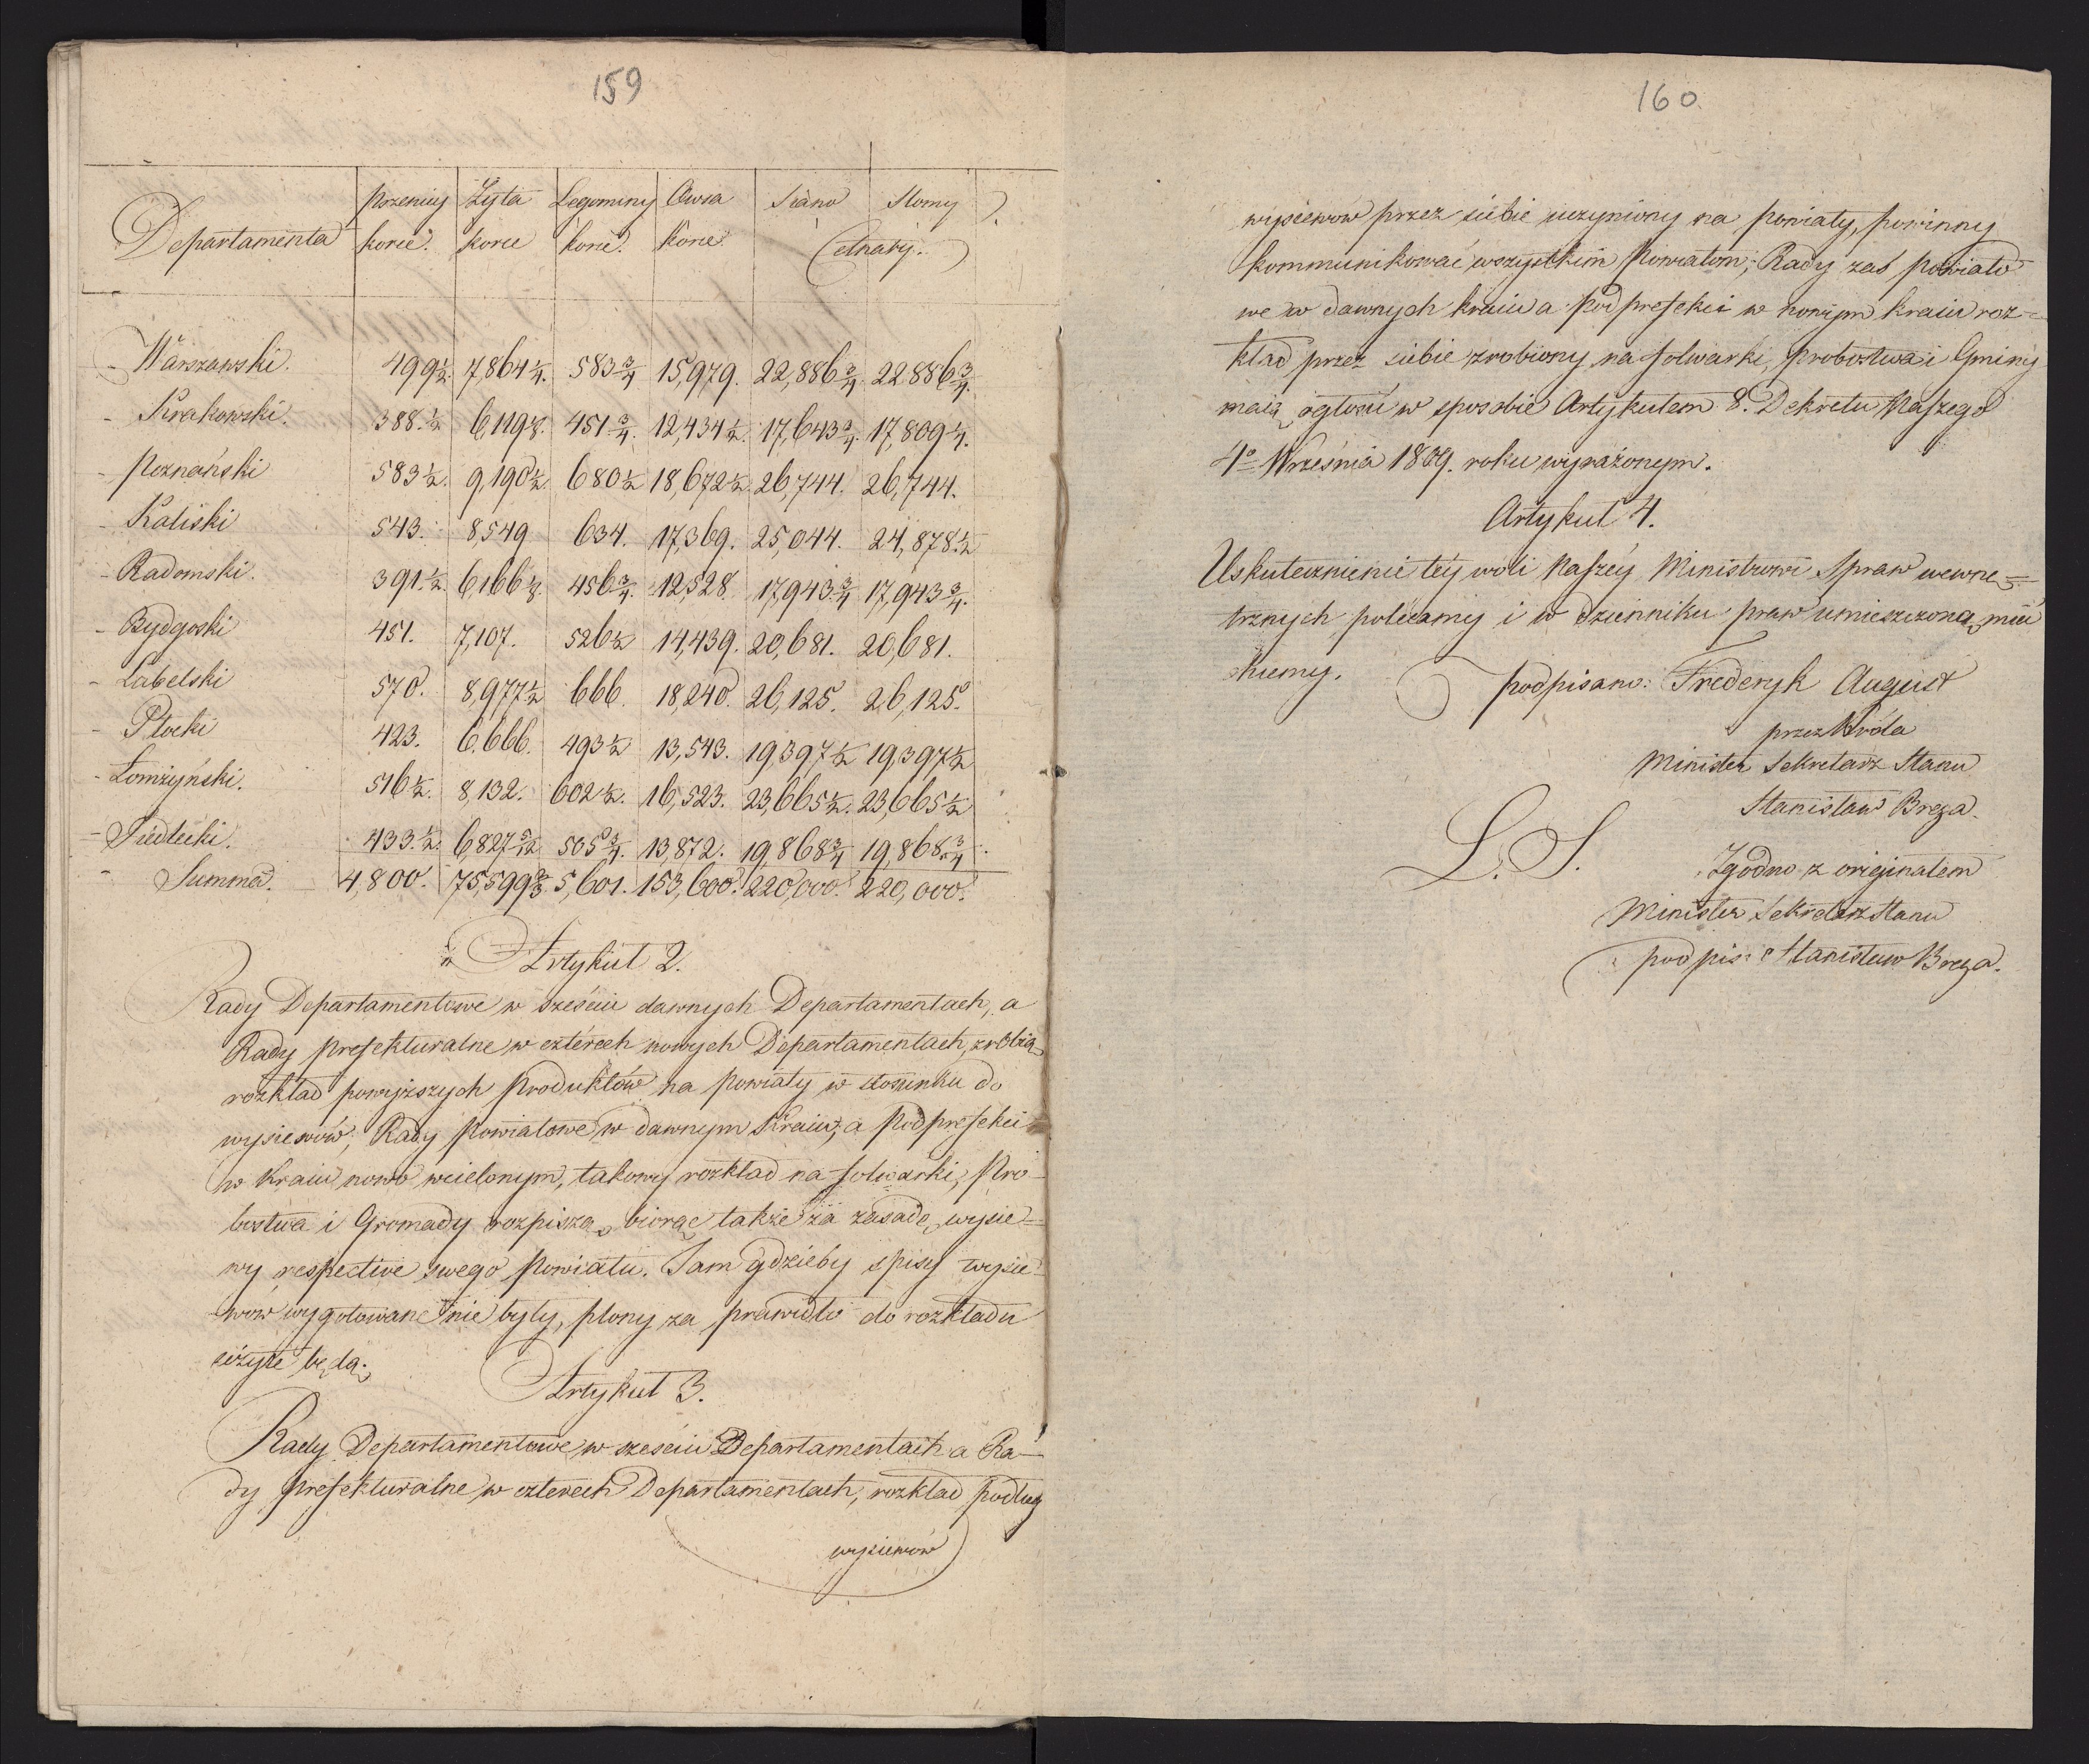 159
Departamenta Przenicy Zyta Legominy Owsa Siano Słomy
korce. korce korce. korce. Cetnary.
Warszawski. 499½. 7,864¼. 583¾ 15,979. 22,886¾ 22,886¾.
Krakowski. 388.½ 6,119⅞. 451¾. 12,434½. 17,643¾. 17,809¼.
Poznański 583½. 9,190½. 680½ 18,672½. 26,744. 26,744.
Kaliski 543. 8,549 634. 17,369. 25,044. 24,878.½
Radomski. 391.½ 6,166⅞. 456¾. 12,528. 17,943.¾ 17,943¾.
Bydgoski 451. 7,107. 526½ 14,439. 20,681. 20,681.
Lubelski 570. 8,977½ 666. 18,240. 26,125. 26,125.
Płocki 423. 6,666. 493½ 13,543. 19,397½ 19,397½
Łomżyński. 516½. 8,132. 602½. 16,523. 23,665½. 23,665½
Siedlecki. 433.½. 6,827 5/12 505¾. 13,872. 19,868¾ 19,868.¾.
Summa. 4,800. 75,599⅔. 5,601. 153,600. 220,000. 220,000.
Artykuł 2.
Rady Departamentowe w sześciu dawnych Departamentach, a
Rady prefekturalne w czterech nowych Departamentach, zrobią
rozkład powyższych Produktów na Powiaty w stosunku do
wysiewów, Rady Powiatowe w dawnym Kraiu, a Podprefekci
w Kraiu nowo wcielonym, takowy rozkład na folwarki, Pro-
bostwa i Gromady rozpiszą, biorąc także za zasadę, wysie=
wy respective swego Powiatu. Tam gdzieby spisy wysie-
wów wygotowane nie były, plony za prawidło do rozkładu
użyte będą.
Artykuł 3.
Rady Departamentowe w sześciu Departamentach a Ra-
dy prefekturalne w czterech Departamentach, rozkład podług
wysiewów
160.
wysiewów przez siebie uczyniony na Powiaty, powinny
kommunikować wszystkim Powiatom; Rady zaś powiato-
we w dawnych kraiu a Podprefekci w nowym kraiu roz=
kład przez siebie zrobiony na folwarki, probostwa i Gminy
maią ogłosić w sposobie Artykułem 8. Dekretu Naszego
4º Września 1809. roku wyrażonym.
Artykuł 4.
Uskutecznienie téy woli Naszéy Ministrowi Spraw wewnę=
trznych polecamy i w dzienniku praw umieszczoną mieć
chcemy.
podpisano: Frederyk August
przez Króla
Minister Sekretarz Stanu
Stanisław Breza.
L. S.
Zgodno z originałem
Minister Sekretarz Stanu
podpis: Stanisław Breza.